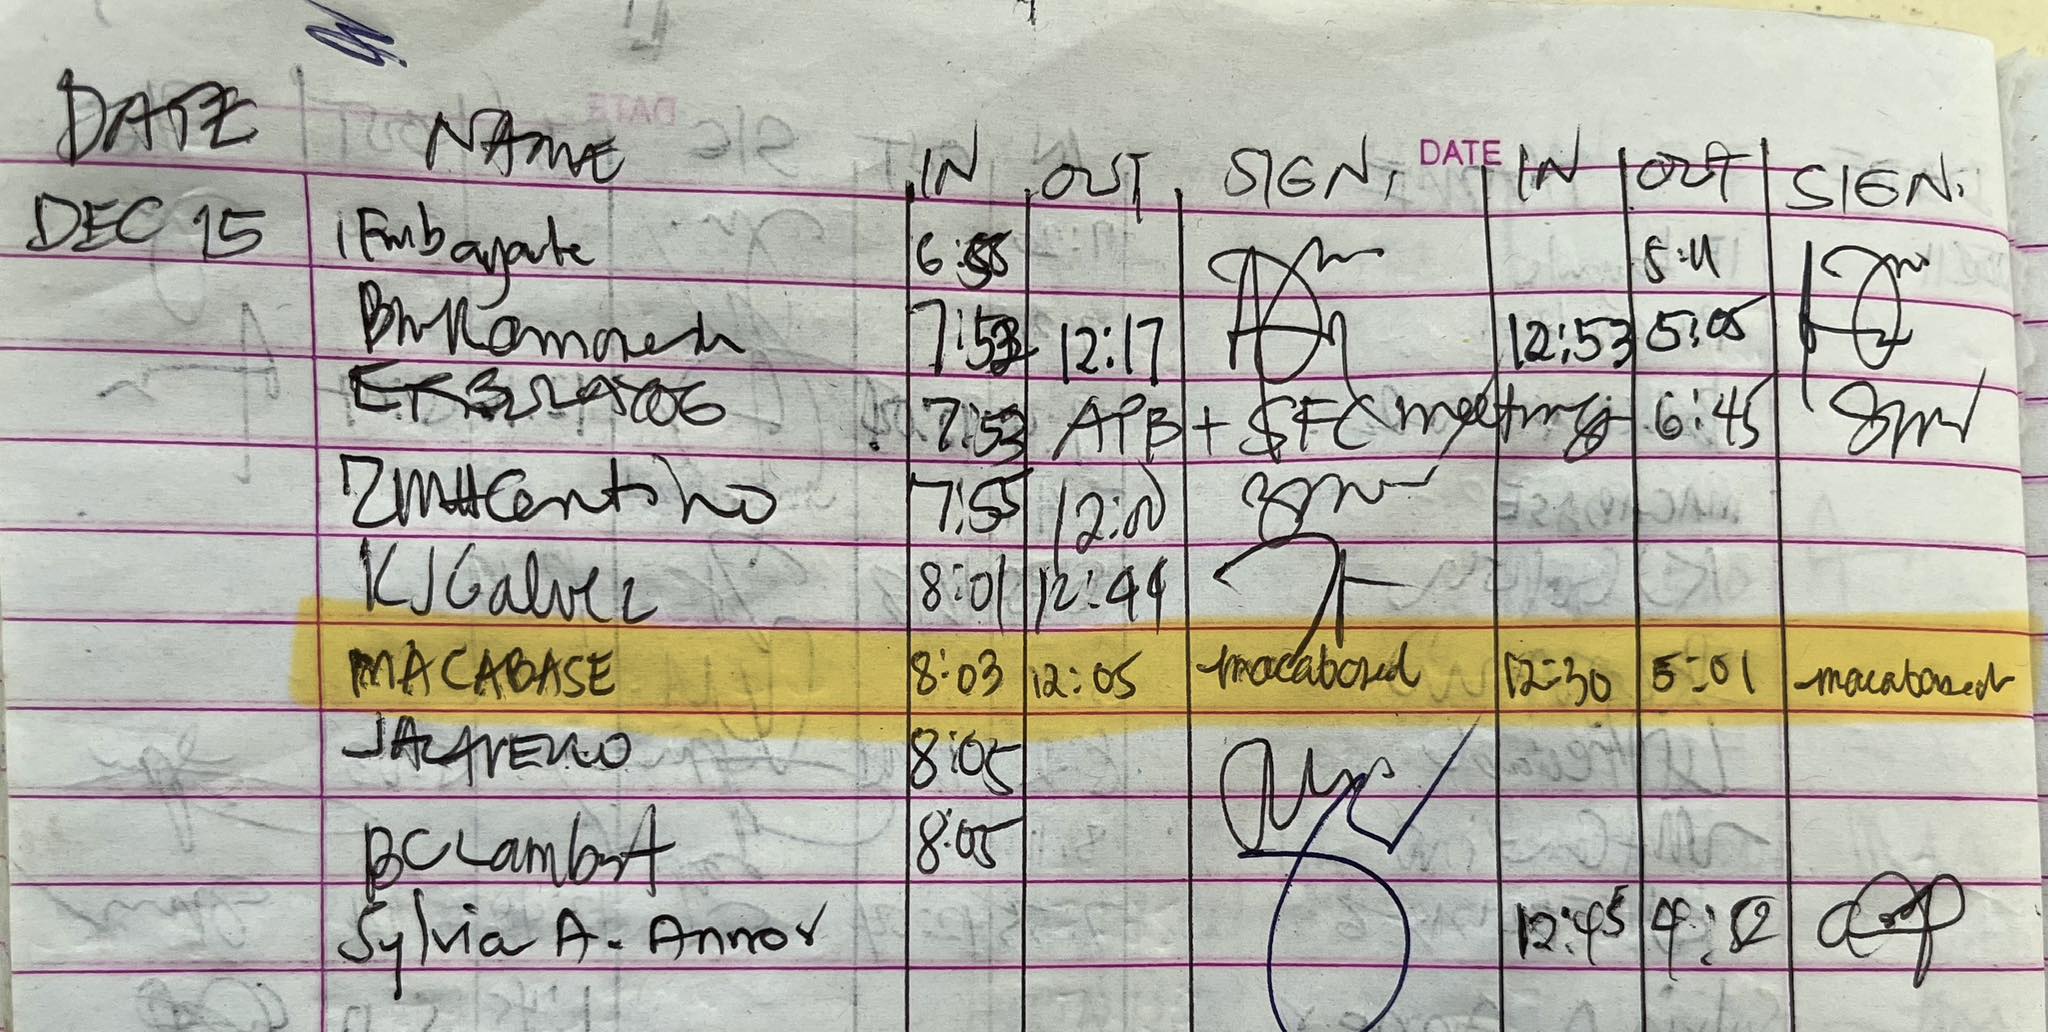 DATE NAME IN OUT SIGN. DATE IN OUT SIGN.
DEC 15 Embayarte 6:55 5:11
7:53 12:17 12:53 5:05
7:53 APB + SFC meeting 6:45
ZMHCentino 7:55 12:00
KJGalvez 8:01 12:44
MACABASE 8:03 12:05 macabased 12:30 5:01 macabased
8:05
BCLambot 8:05
Sylvia A. Annor 12:45 4:52